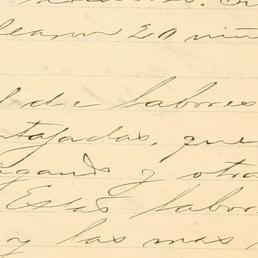 20 niñ
l de labores
ntajadas, que
igando y otra
Estas labor
y las mas